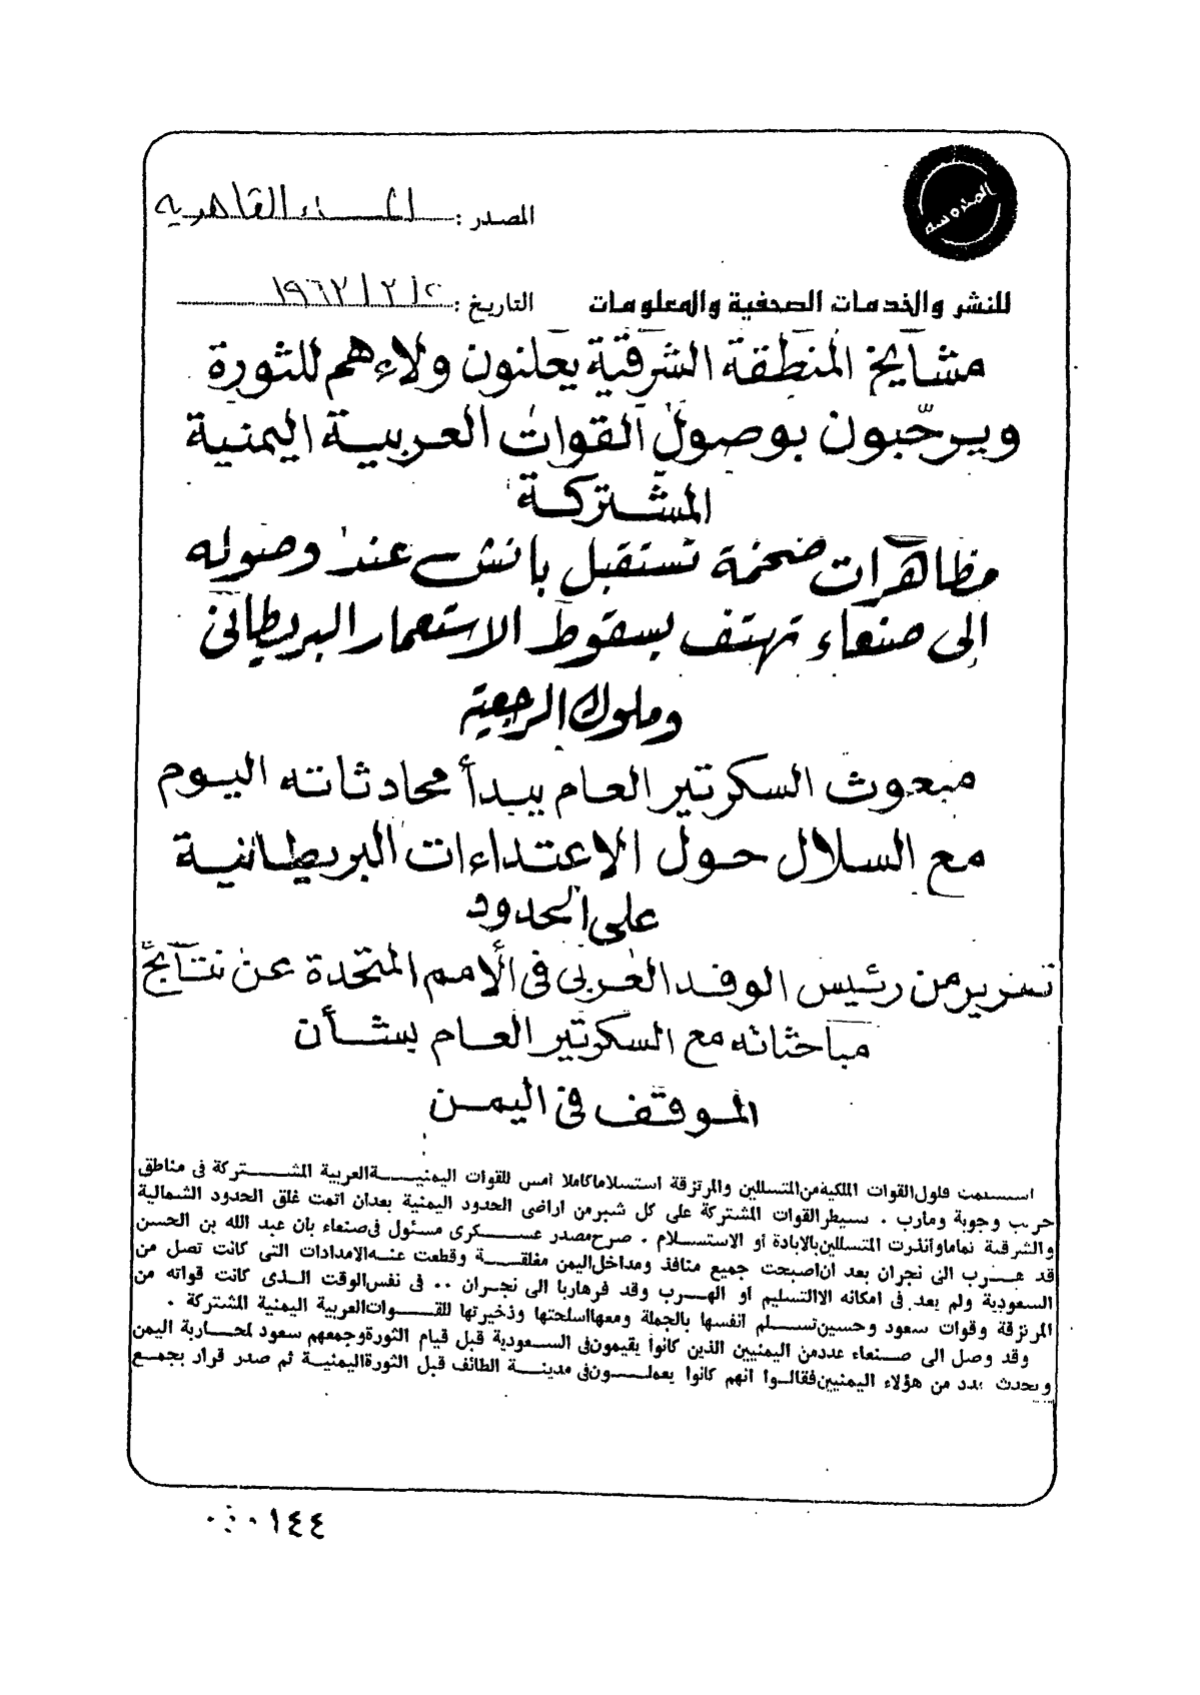 المحروسة
المصدر : المساء القاهرية
للنشر والخدمات الصحفية والمعلومات
التاريخ : ١٩٦٣/٣/٢
مشايخ المنطقة الشرقية يعلنون ولاءهم للثورة
ويرحّبون بوصول القوات العربية اليمنية
المشتركة
مظاهرات ضخمة تستقبل بانش عند وصوله
إلى صنعاء تهتف بسقوط الاستعمار البريطانى
وملوك الرجعية
مبعوث السكرتير العام يبدأ محادثاته اليوم
مع السلال حول الاعتداءات البريطانية
على الحدود
تقرير من رئيس الوفد العربى فى الأمم المتحدة عن نتائج
مباحثاته مع السكرتير العام بشأن
الموقف فى اليمن
استسلمت فلول القوات الملكية من المتسللين والمرتزقة استسلاما كاملا امس للقوات اليمنية العربية المشتركة فى مناطق
حريب وجوبة ومأرب . سيطر القوات المشتركة على كل شبر من اراضى الحدود اليمنية بعد ان اتمت غلق الحدود الشمالية
والشرقية تماما وأنذرت المتسللين بالابادة أو الاستسلام . صرح مصدر عسكرى مسئول فى صنعاء بان عبد الله بن الحسن
قد هرب الى نجران بعد ان اصبحت جميع منافذ ومداخل اليمن مغلقة وقطعت عنه الامدادات التى كانت تصل من
السعودية ولم يعد فى امكانه الا التسليم أو الهرب وقد فر هاربا الى نجران .. فى نفس الوقت الذى كانت قواته من
المرتزقة وقوات سعود وحسين تسلم انفسها بالجملة ومعها اسلحتها وذخيرتها للقوات العربية اليمنية المشتركة .
وقد وصل الى صنعاء عدد من اليمنيين الذين كانوا يقيمون فى السعودية قبل قيام الثورة وجمعهم سعود لمحاربة اليمن
وتحدث عدد من هؤلاء اليمنيين فقالوا انهم كانوا يعملون فى مدينة الطائف قبل الثورة اليمنية ثم صدر قرار بجمع
٠٠٠١٤٤